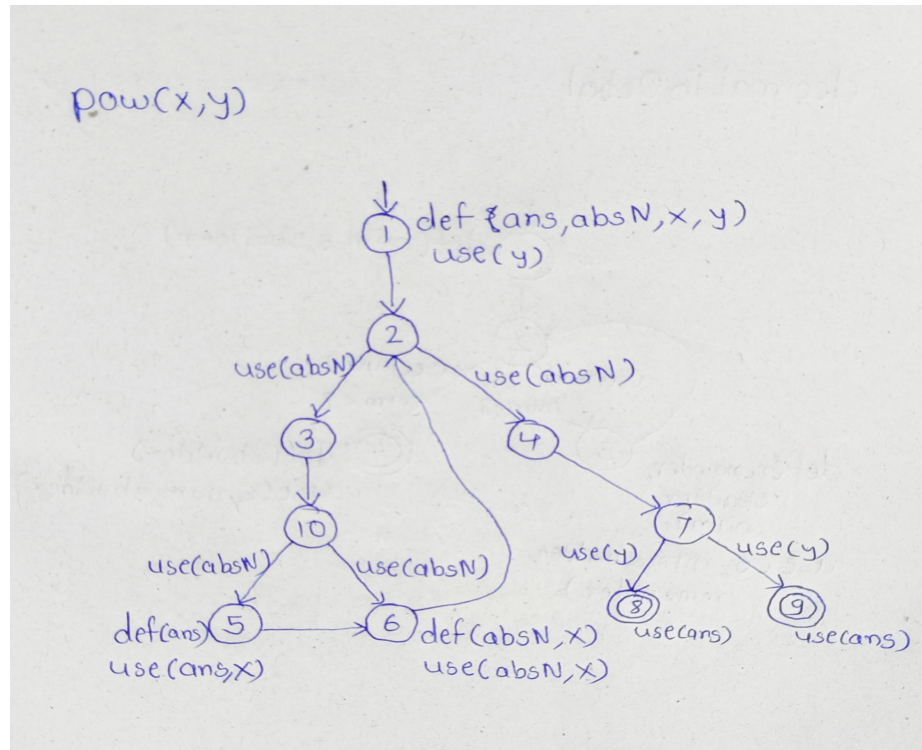 pow(x,y)
1 def {ans,absN,x,y)
use(y)
2
use(absN) use(absN)
3 4
10 7
use(absN) use(absN) use(y) use(y)
def(ans) 5 6 def(absN,x) 8 9
use(ans,x) use(absN,x) use(ans) use(ans)